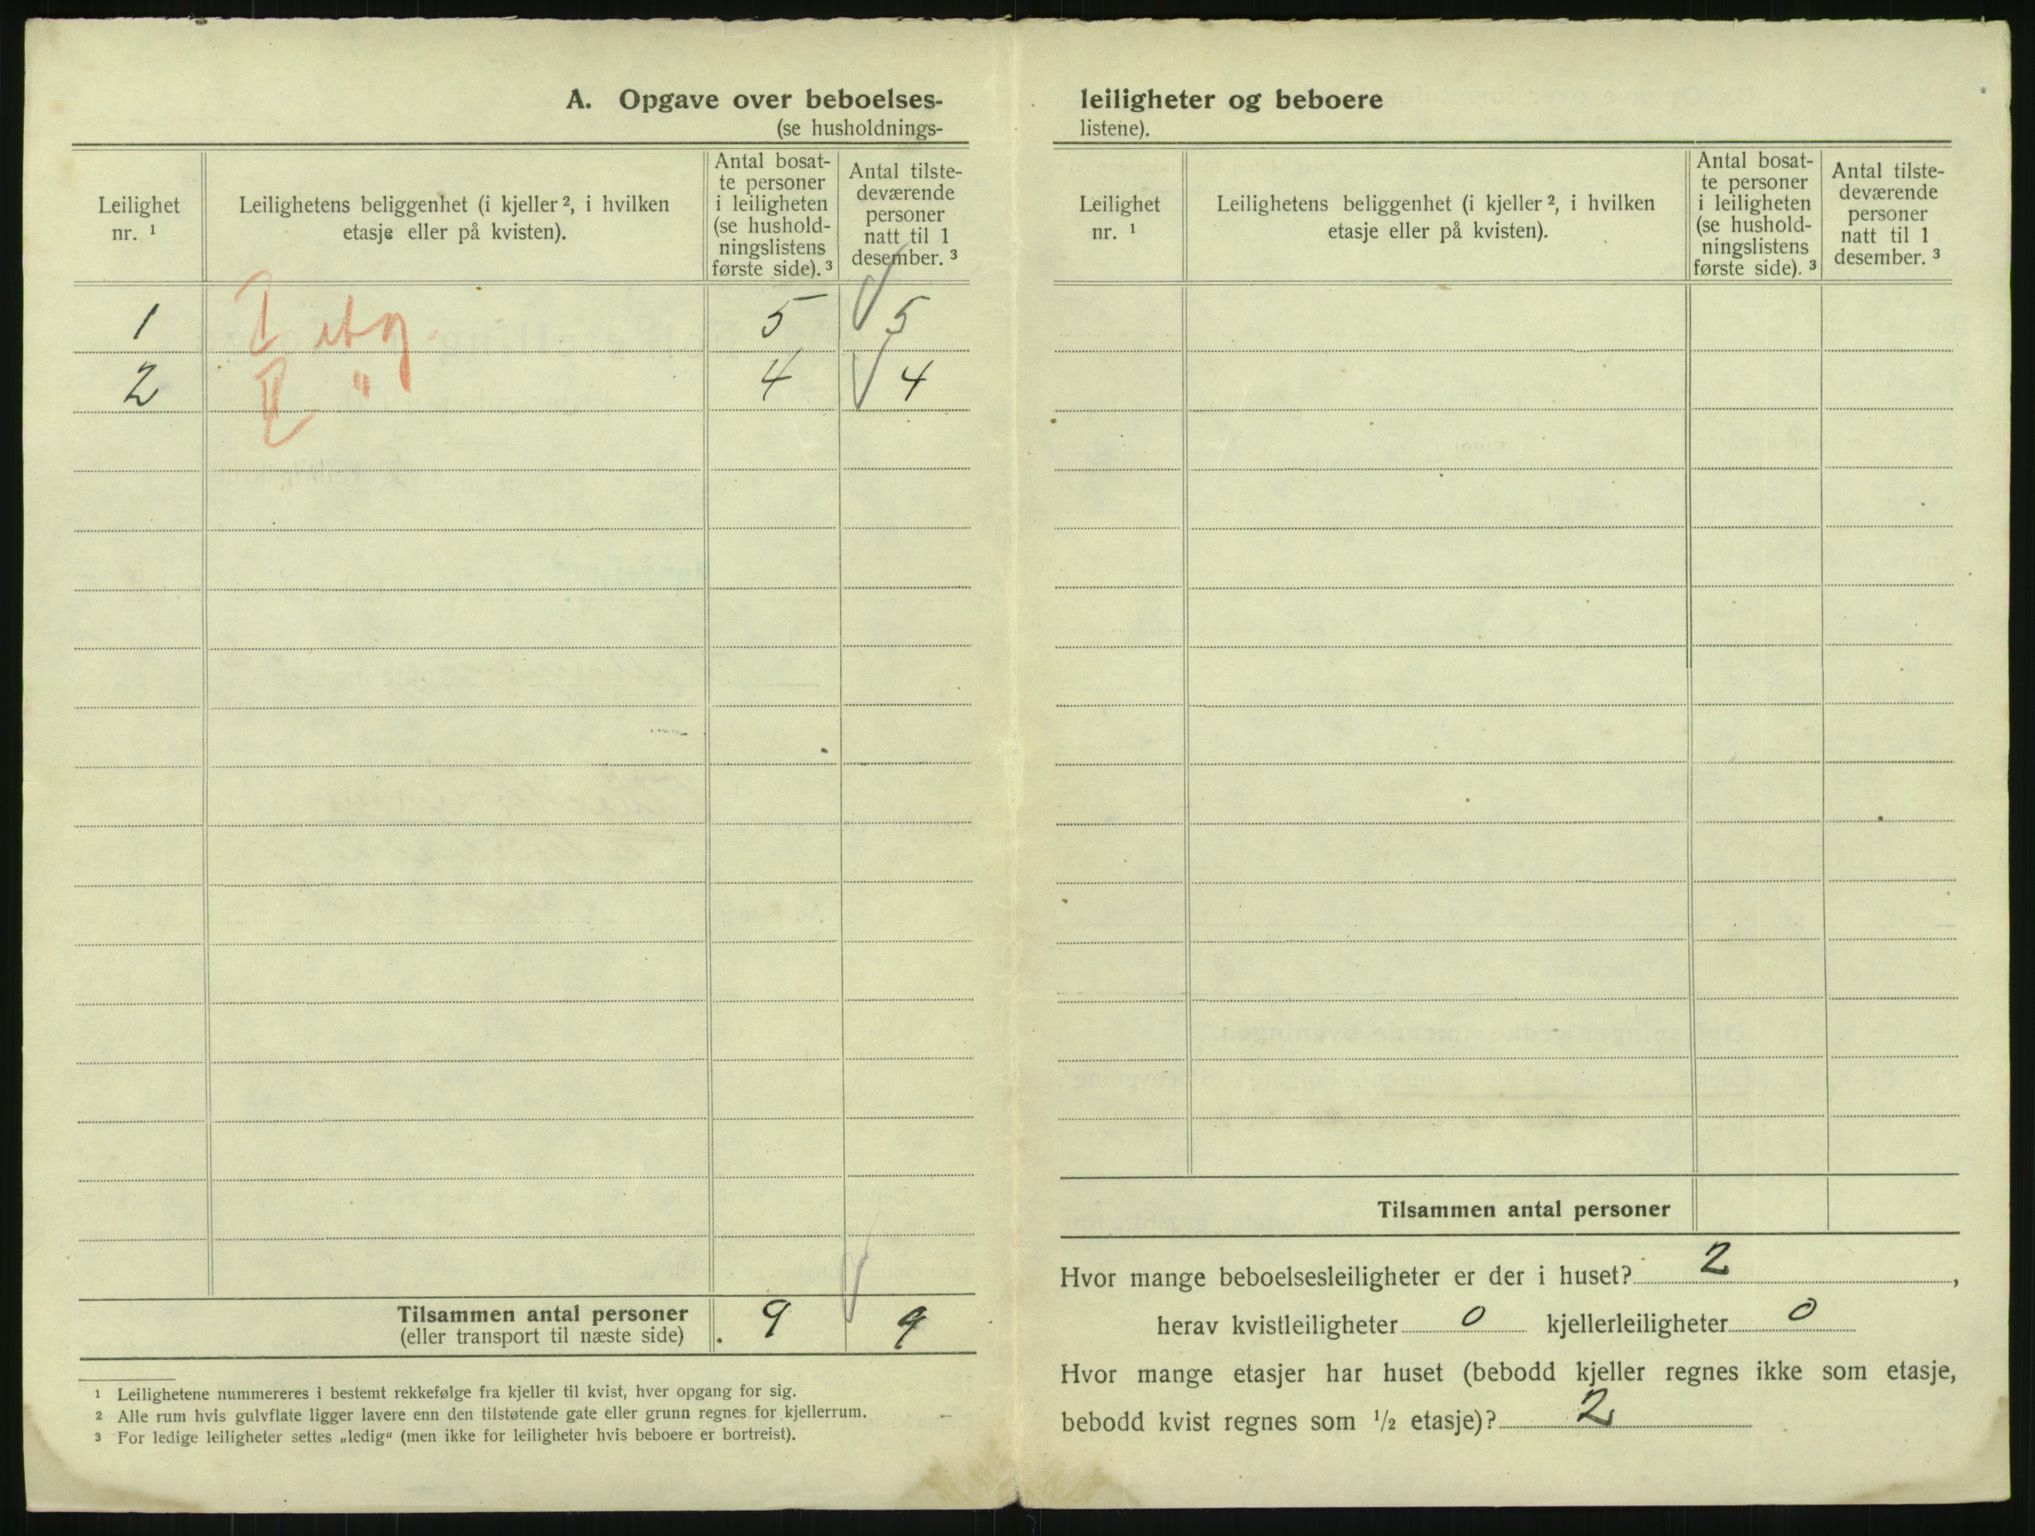 A. Opgave over beboelses-
(se husholdnings-
Leilighet
nr. ¹
Leilighetens beliggenhet (i kjeller ², i hvilken
etasje eller på kvisten).
Antal bosat-
te personer
i leiligheten
(se hushold-
ningslistens
første side). ³
Antal tilste-
deværende
personer
natt til 1
desember. ³
1 I etg. 5 5
2 II " 4 4
Tilsammen antal personer 9 9
(eller transport til næste side)
¹ Leilighetene nummereres i bestemt rekkefølge fra kjeller til kvist, hver opgang for sig.
² Alle rum hvis gulvflate ligger lavere enn den tilstøtende gate eller grunn regnes for kjellerrum.
³ For ledige leiligheter settes „ledig“ (men ikke for leiligheter hvis beboere er bortreist).
leiligheter og beboere
listene).
Leilighet
nr. ¹
Leilighetens beliggenhet (i kjeller ², i hvilken
etasje eller på kvisten).
Antal bosat-
te personer
i leiligheten
(se hushold-
ningslistens
første side). ³
Antal tilste-
deværende
personer
natt til 1
desember. ³
Tilsammen antal personer
Hvor mange beboelsesleiligheter er der i huset? 2,
herav kvistleiligheter 0 kjellerleiligheter 0
Hvor mange etasjer har huset (bebodd kjeller regnes ikke som etasje,
bebodd kvist regnes som ½ etasje)? 2